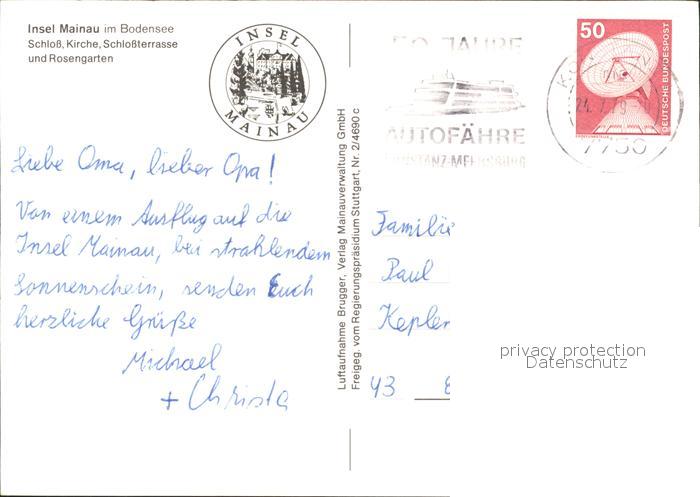 Insel Mainau im Bodensee
Schloß, Kirche, Schloßterrasse
und Rosengarten
INSEL
MAINAU
50 JAHRE
AUTOFÄHRE
KONSTANZ-MEERSBURG
50
DEUTSCHE BUNDESPOST
7750
Liebe Oma, lieber Opa!
Von einem Ausflug auf die
Insel Mainau, bei strahlendem
Sonnenschein, senden Euch
herzliche Grüße
Michael
+ Christa
Luftaufnahme Brugger, Verlag Mainauverwaltung GmbH
Freigeg. vom Regierungspräsidium Stuttgart, Nr. 2/4690 c
Familie
Paul
Kepler
43
privacy protection
Datenschutz